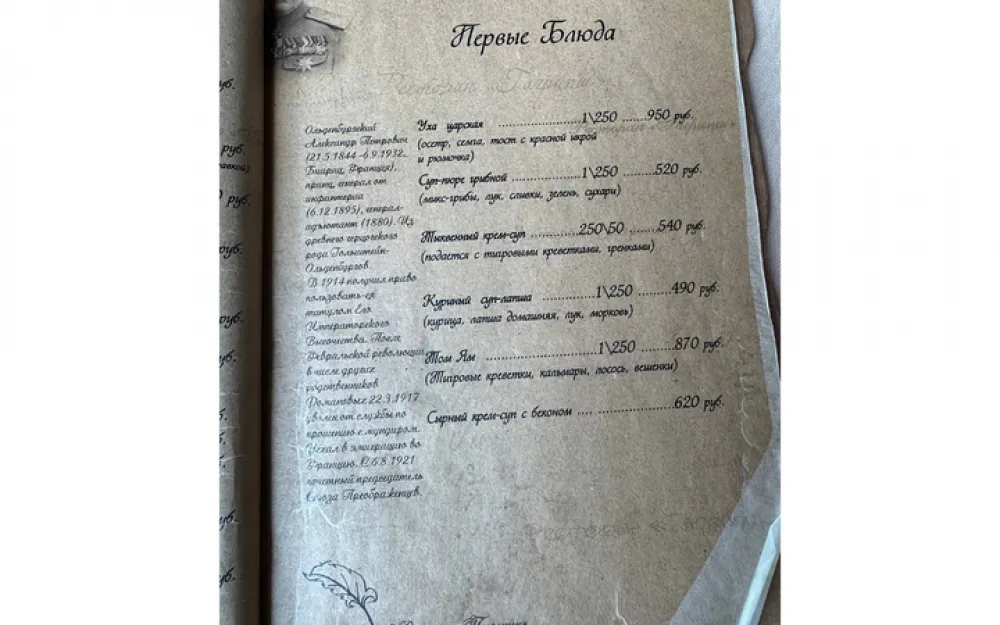 Первые Блюда
Ресторан «Гагринш»
Ольденбургский
Александр Петрович
(21.5.1844 -6.9.1932,
Биариц, Франция),
принц, генерал от
инфантерии
(6.12.1895), генерал-
адъютант (1880). Из
древнего герцогского
рода Гольштейн-
Ольденбургов
В 1914 получил право
пользовать-ся
титулом Его
Императорского
Высочества. После
Февральской революции
в числе других
родственников
Романовых 22.3.1917
уволен от службы по
прошению с мундиром.
Уехал в эмиграцию во
Францию. С 6.8.1921
почетный председатель
Союза Преображенцев.
Уха царская ........................1\250 ......950 руб.
(осетр, семга, тост с красной икрой
и рюмочка)
Суп-пюре грибной ....................1\250 .........520 руб.
(микс-грибы, лук, сливки, зелень, сухари)
Тыквенный крем-суп ............250\50 ........540 руб.
(подается с тигровыми креветками, гренками)
Куриный суп-лапша .................1\250 ..........490 руб.
(курица, лапша домашняя, лук, морковь)
Том Ям ........................1\250 ..........870 руб.
(Тигровые креветки, кальмары, лосось, вешенки)
Сырный крем-суп с беконом .... ........................620 руб.
уб.
руб.
руб.
уб.
руб.
уб.
уб.
уб.